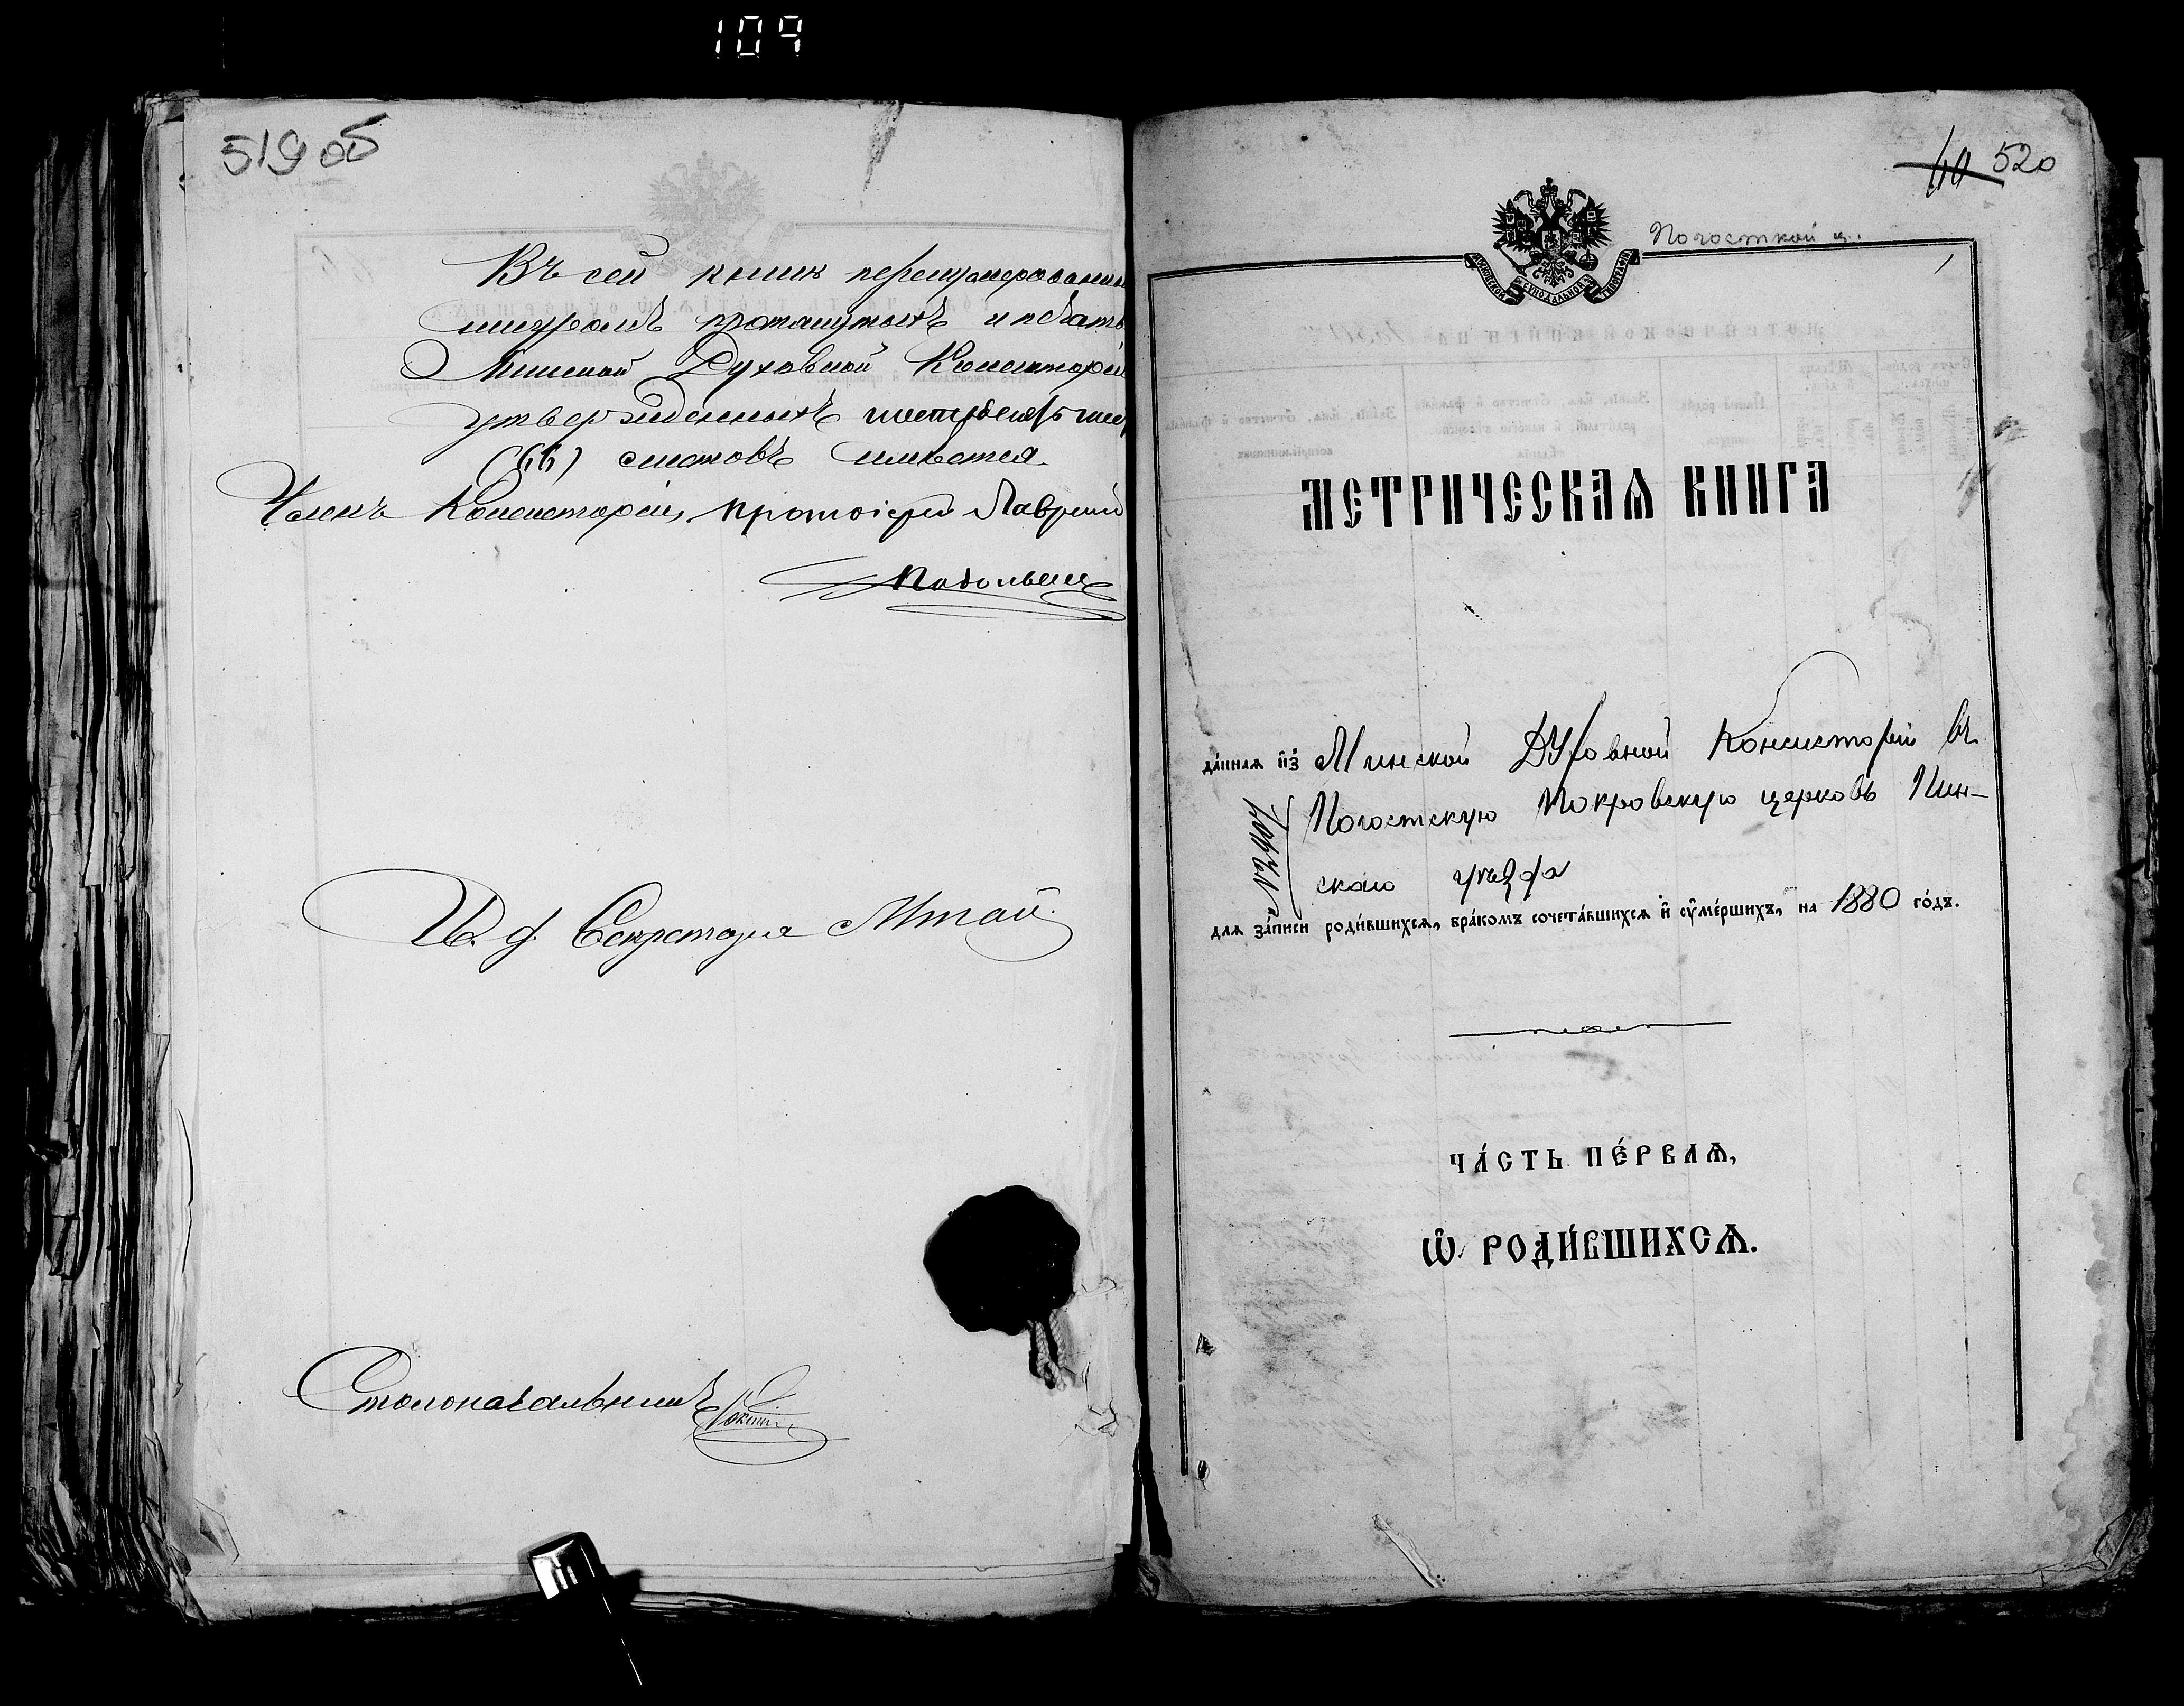 109
519 об
Въ сей книгѣ перенумерованныхъ
шнуромъ протянутыхъ и печатью
Минской Духовной Консисторіи
утвержденныхъ шестьдесятъ шес
(66) листовъ имѣется.
Членъ Консисторіи, протоіерей Лаврентій
И. д. Секретаря
Столоначальникъ
520
Погосткой ц.
1
МОСКОВСКОЙ СѴНОДАЛЬНОЙ ТИПОГРАФІИ
МЕТРИЧЕСКАѦ КНИГА
да́ннаѧ и҆з̾ Минской Духовной Консисторіи въ
Погостскую Покровскую церковь Пин-
скаго уѣзда
длѧ за́писи роди́вшихсѧ, бра́комъ сочета́вшихсѧ и҆ ѹ҆ме́ршихъ, на 1880 го́дъ.
ЧА́СТЬ ПЕ́РВАѦ,
Ѽ РОДИ́ВШИХСѦ.